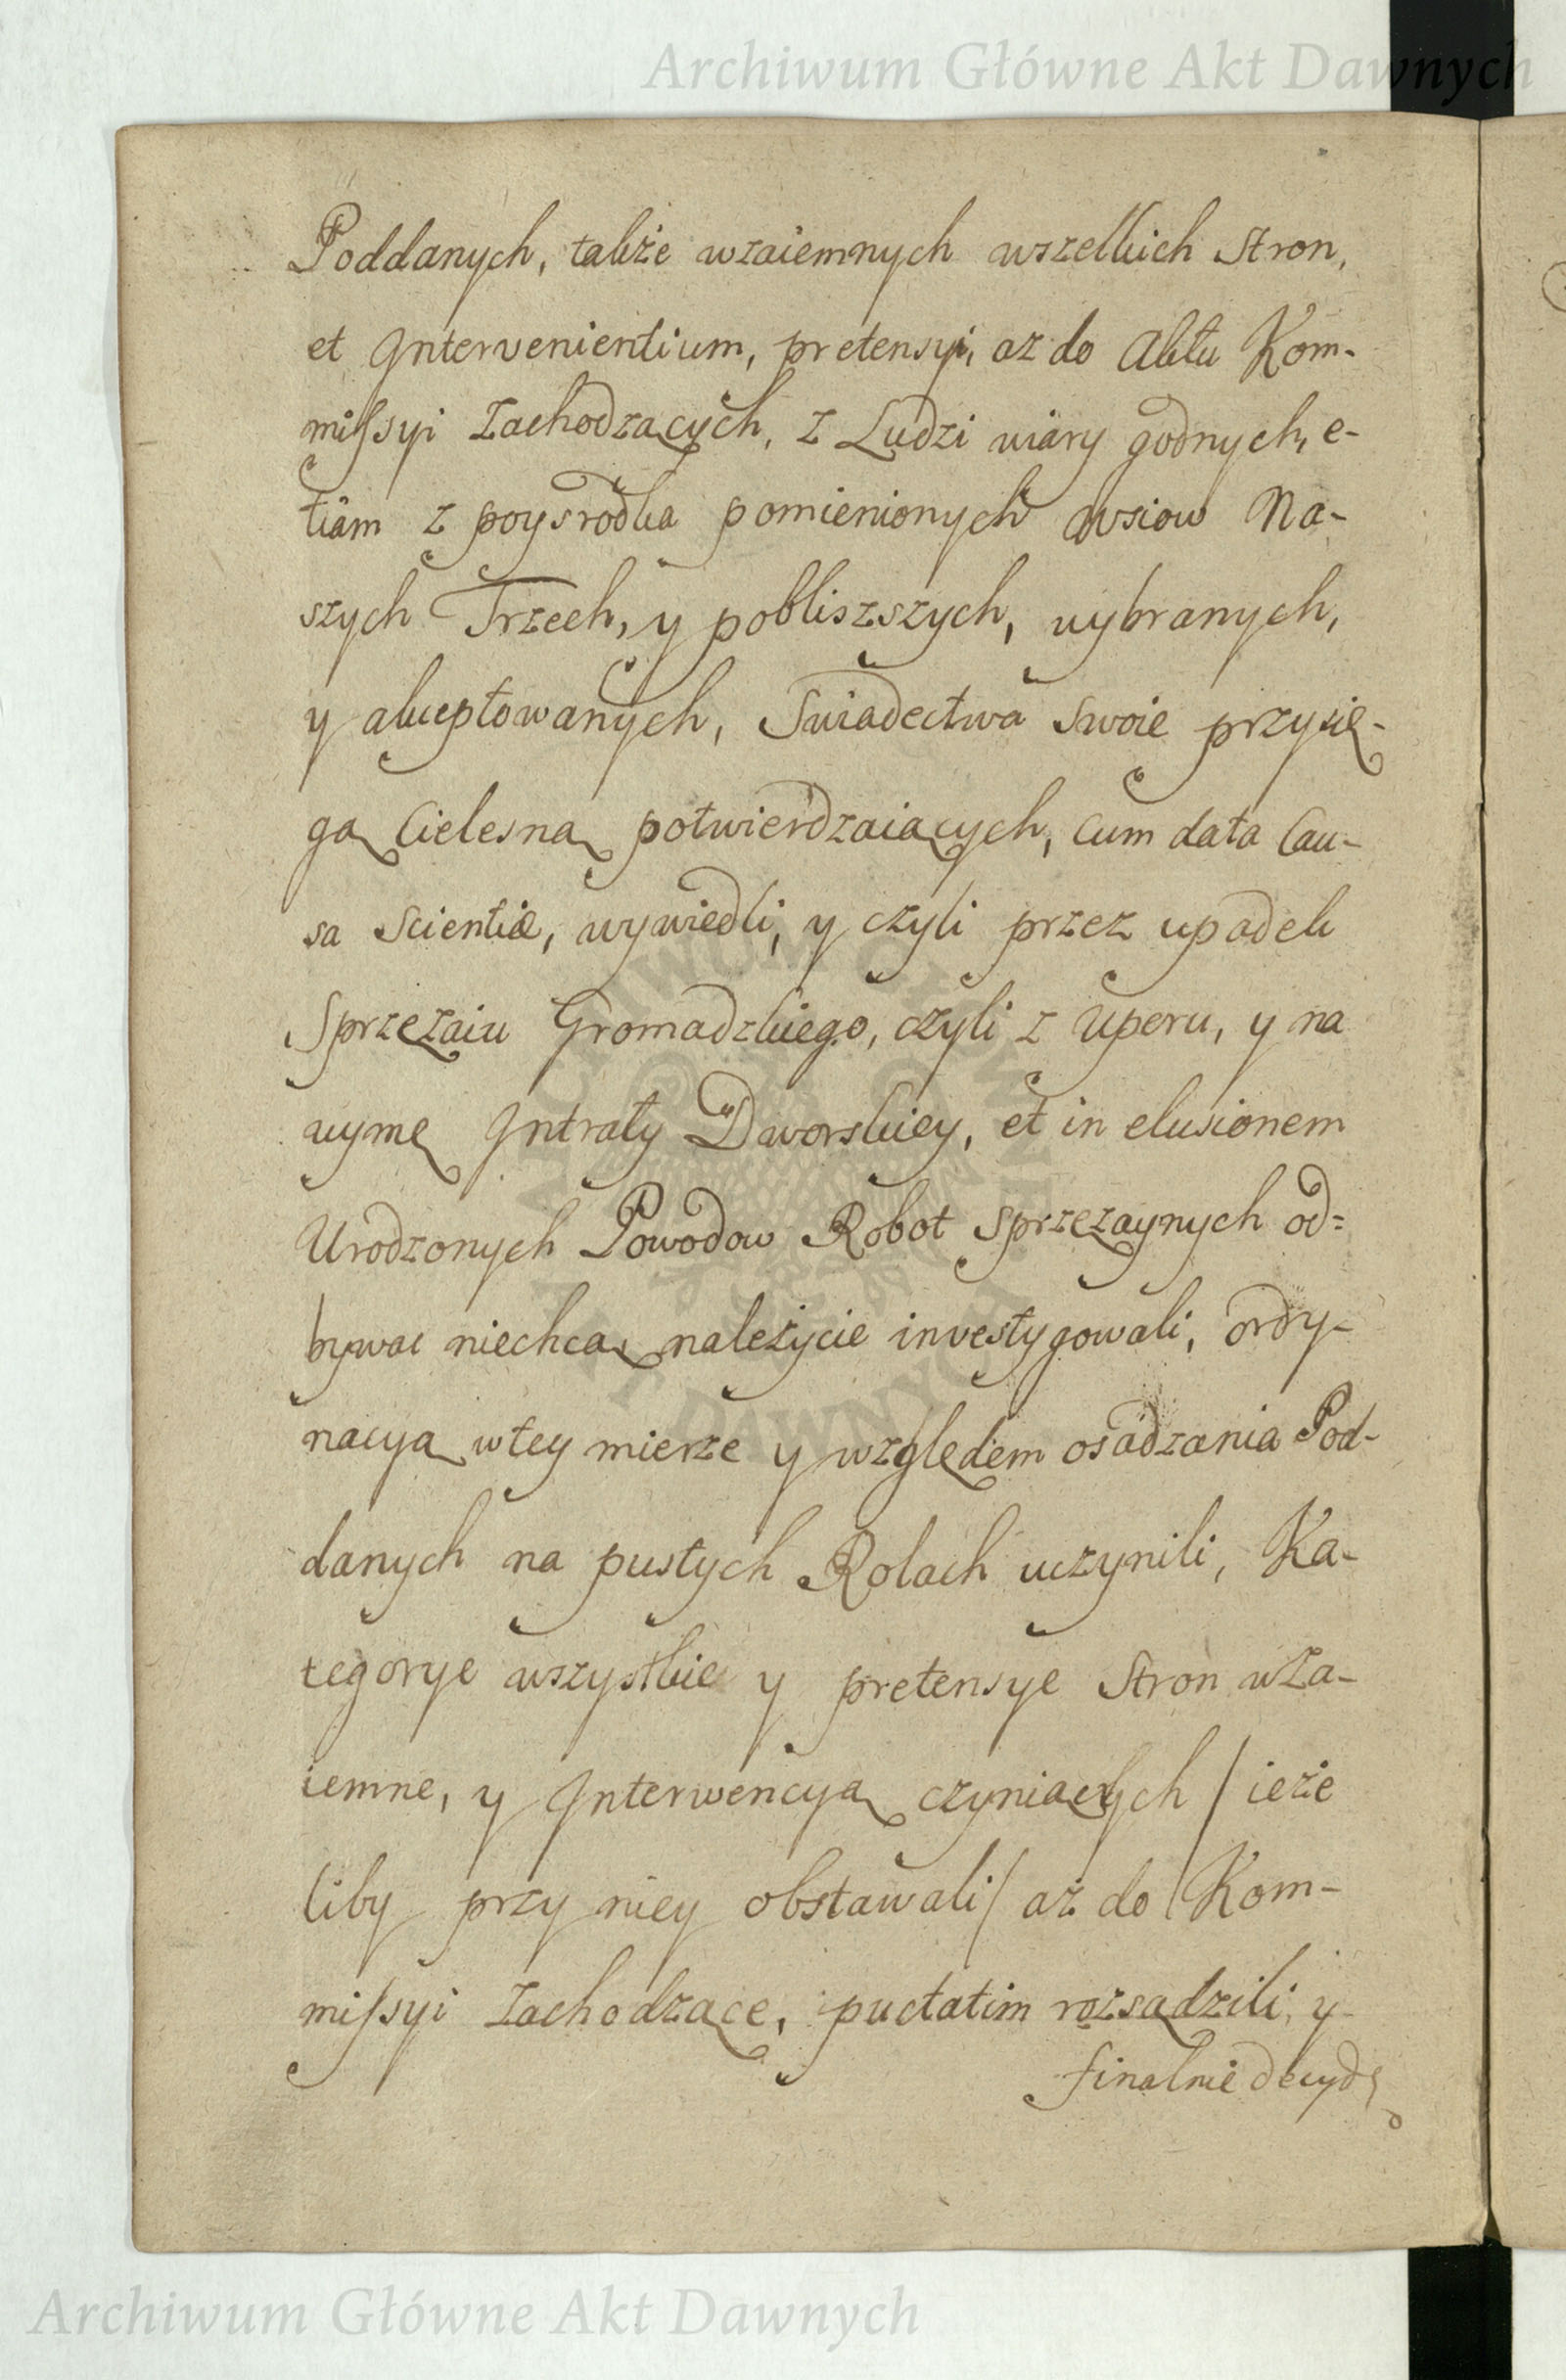 Archiwum Główne Akt Dawnych
Poddanych, także wzaiemnych wszelkich Stron,
et Intervenientium, pretensyi, aż do Aktu Kom-
missyi Zachodzących, z Ludzi wiary godnych, e-
tiam z poysrodka pomienionych wsiow Na-
szych Trzech, y pobliszszych, wybranych,
y akceptowanych, Swiadectwa swoie przysię-
gą Cielesną potwierdzaiących, cum data Cau-
sa Scientiæ, wywiedli, y czyli przez upadek
Sprzężaiu Gromadzkiego, czyli z Uperu, y na
uymę Intraty Dworskiey, et in elusionem
Urodzonych Powodow Robot Sprzężaynych od=
bywac niechcą, należycie investygowali, ordy-
nacyą wtey mierze y względem osadzania Pod-
danych na pustych Rolach uczynili, Ka-
tegorye wszystkie y pretensye Stron wza-
iemne, y Interwencyą czyniących / ieże
liby przy niey obstawali / aż do Kom-
missyi Zachodzące, puctatim rozsądzili, y
finalnie decyd
Archiwum Główne Akt Dawnych